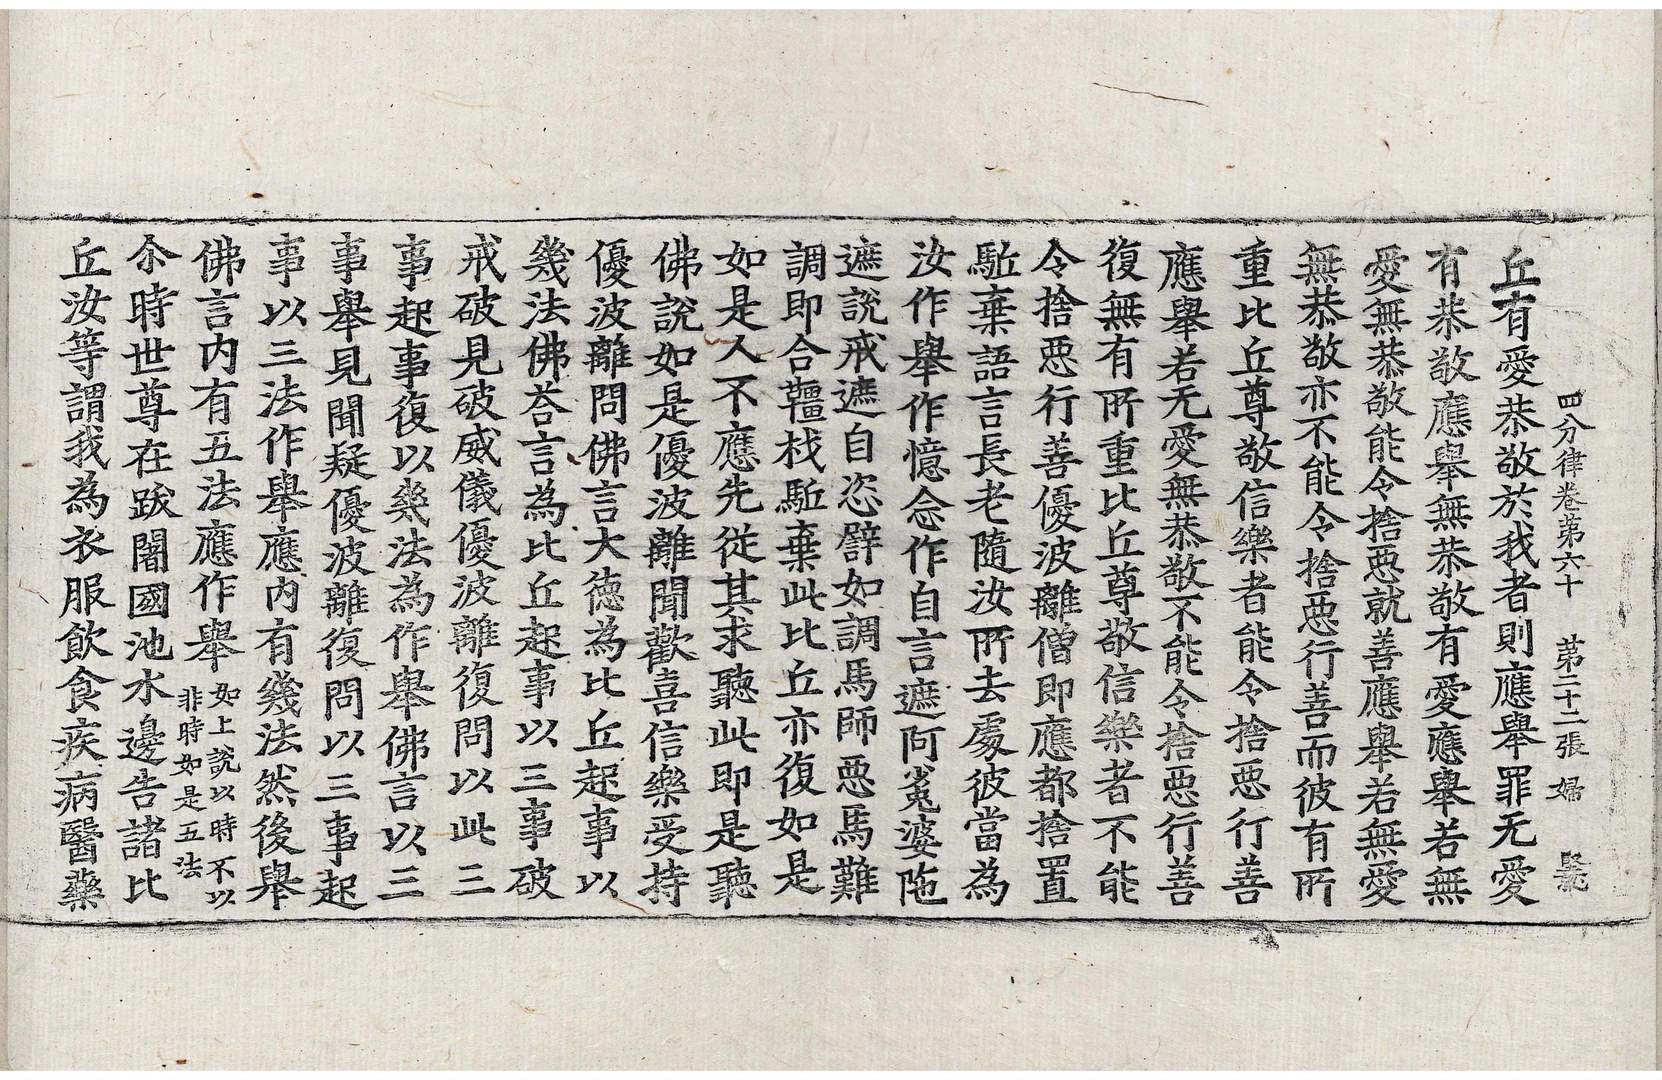 四分律卷第六十　第二十二張　婦
丘有愛恭敬於我者則應舉罪无愛
有恭敬應舉無恭敬有愛應舉若無
愛無恭敬能令捨惡就善應舉若無愛
無恭敬亦不能令捨惡行善而彼有所
重比丘尊敬信樂者能令捨惡行善
應舉若无愛無恭敬不能令捨惡行善
復無有所重比丘尊敬信樂者不能
令捨惡行善優波離僧即應都捨置
駈棄語言長老隨汝所去處彼當為
汝作舉作憶念作自言遮阿㝹婆陁
遮說戒遮自恣譬如調馬師惡馬難
調即合韁杙駈棄此比丘亦復如是
如是人不應先從其求聽此即是聽
佛說如是優波離聞歡喜信樂受持
優波離問佛言大德為比丘起事以
幾法佛荅言為比丘起事以三事破
戒破見破威儀優波離復問以此三
事起事復以幾法為作舉佛言以三
事舉見聞疑優波離復問以三事起
事以三法作舉應內有幾法然後舉
佛言內有五法應作舉如上說以時不以
非時如是五法
尒時世尊在跋闍國池水邊告諸比
丘汝等謂我為衣服飲食疾病醫藥